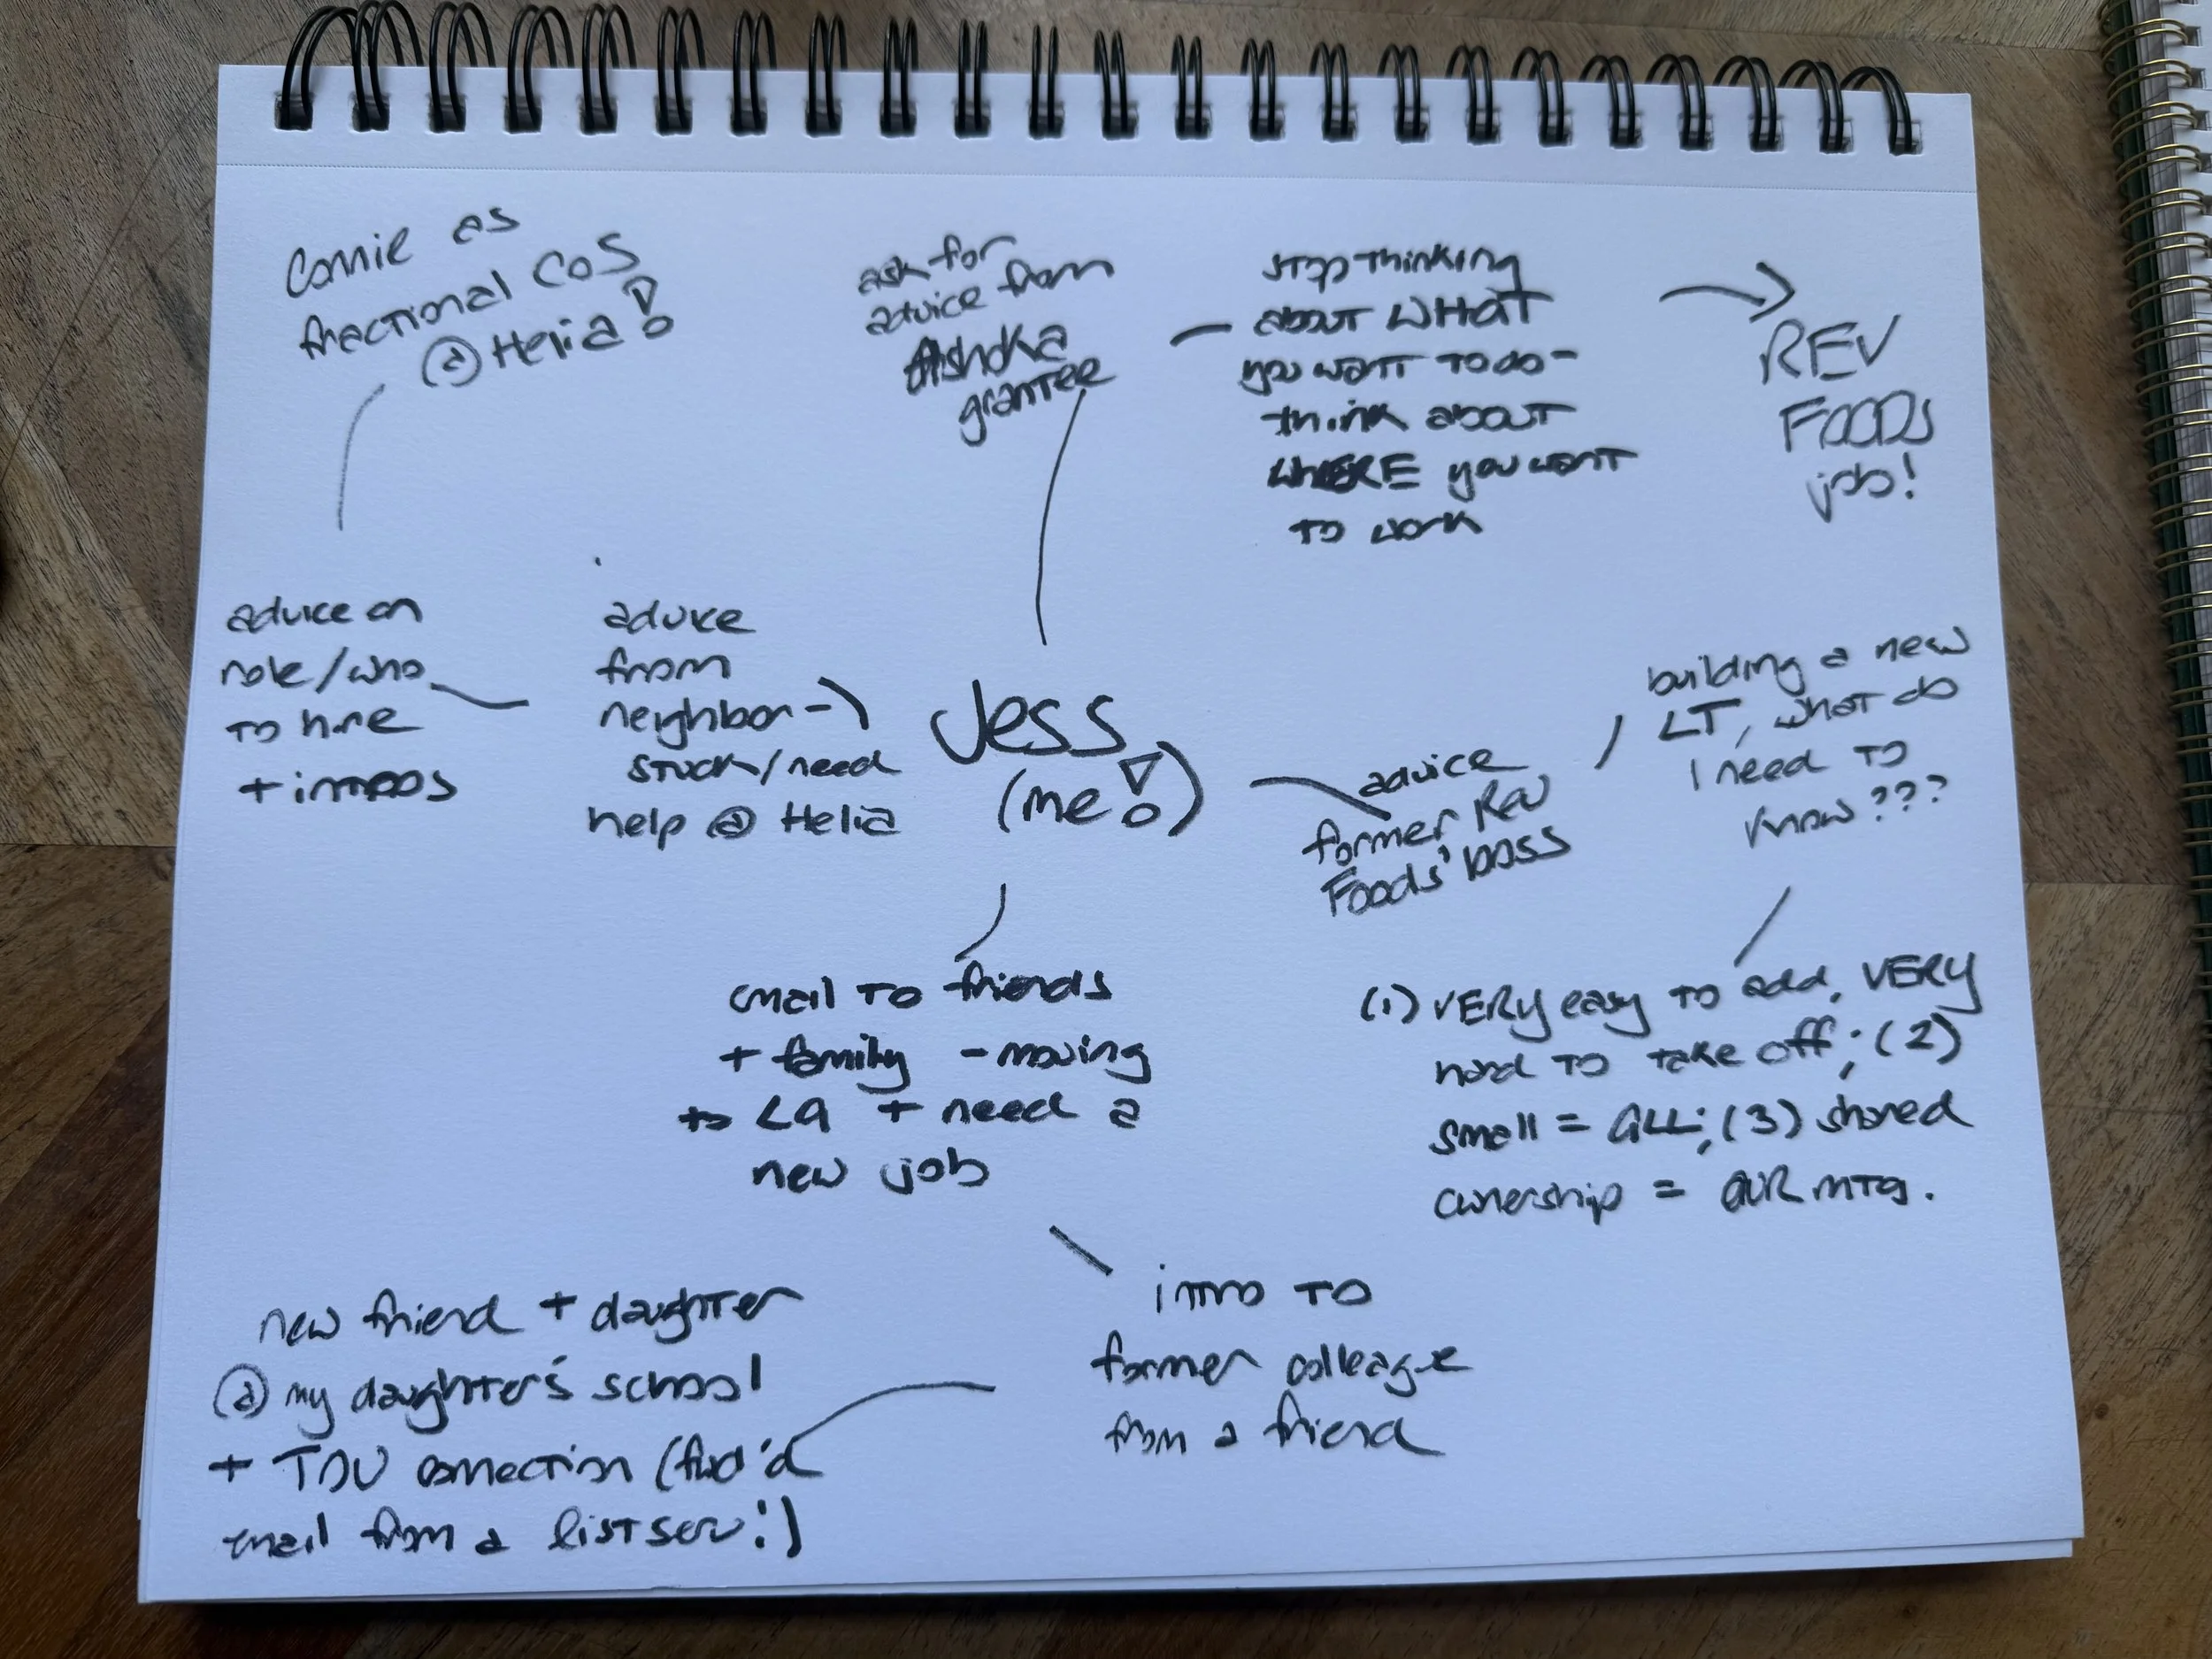 Connie as
fractional CoS
@ Helia!
ask for
advice from
Ashoka
grantee
stop thinking
about WHAT
you want to do -
think about
WHERE you want
to work
REV
FOODS
job!
advice on
role/who
to hire
+ intros
advice
from
neighbor -
stuck/need
help @ Helia
Jess
(me!)
advice
former Rev
Foods' boss
building a new
LT, what do
I need to
know???
(1) VERY easy to add, VERY
hard to take off; (2)
small = ALL; (3) shared
ownership = OUR mtg.
email to friends
+ family - moving
to LA + need a
new job
intro to
former colleague
from a friend
new friend + daughter
@ my daughter's school
+ connection (fwd'd
email from a listserv!)